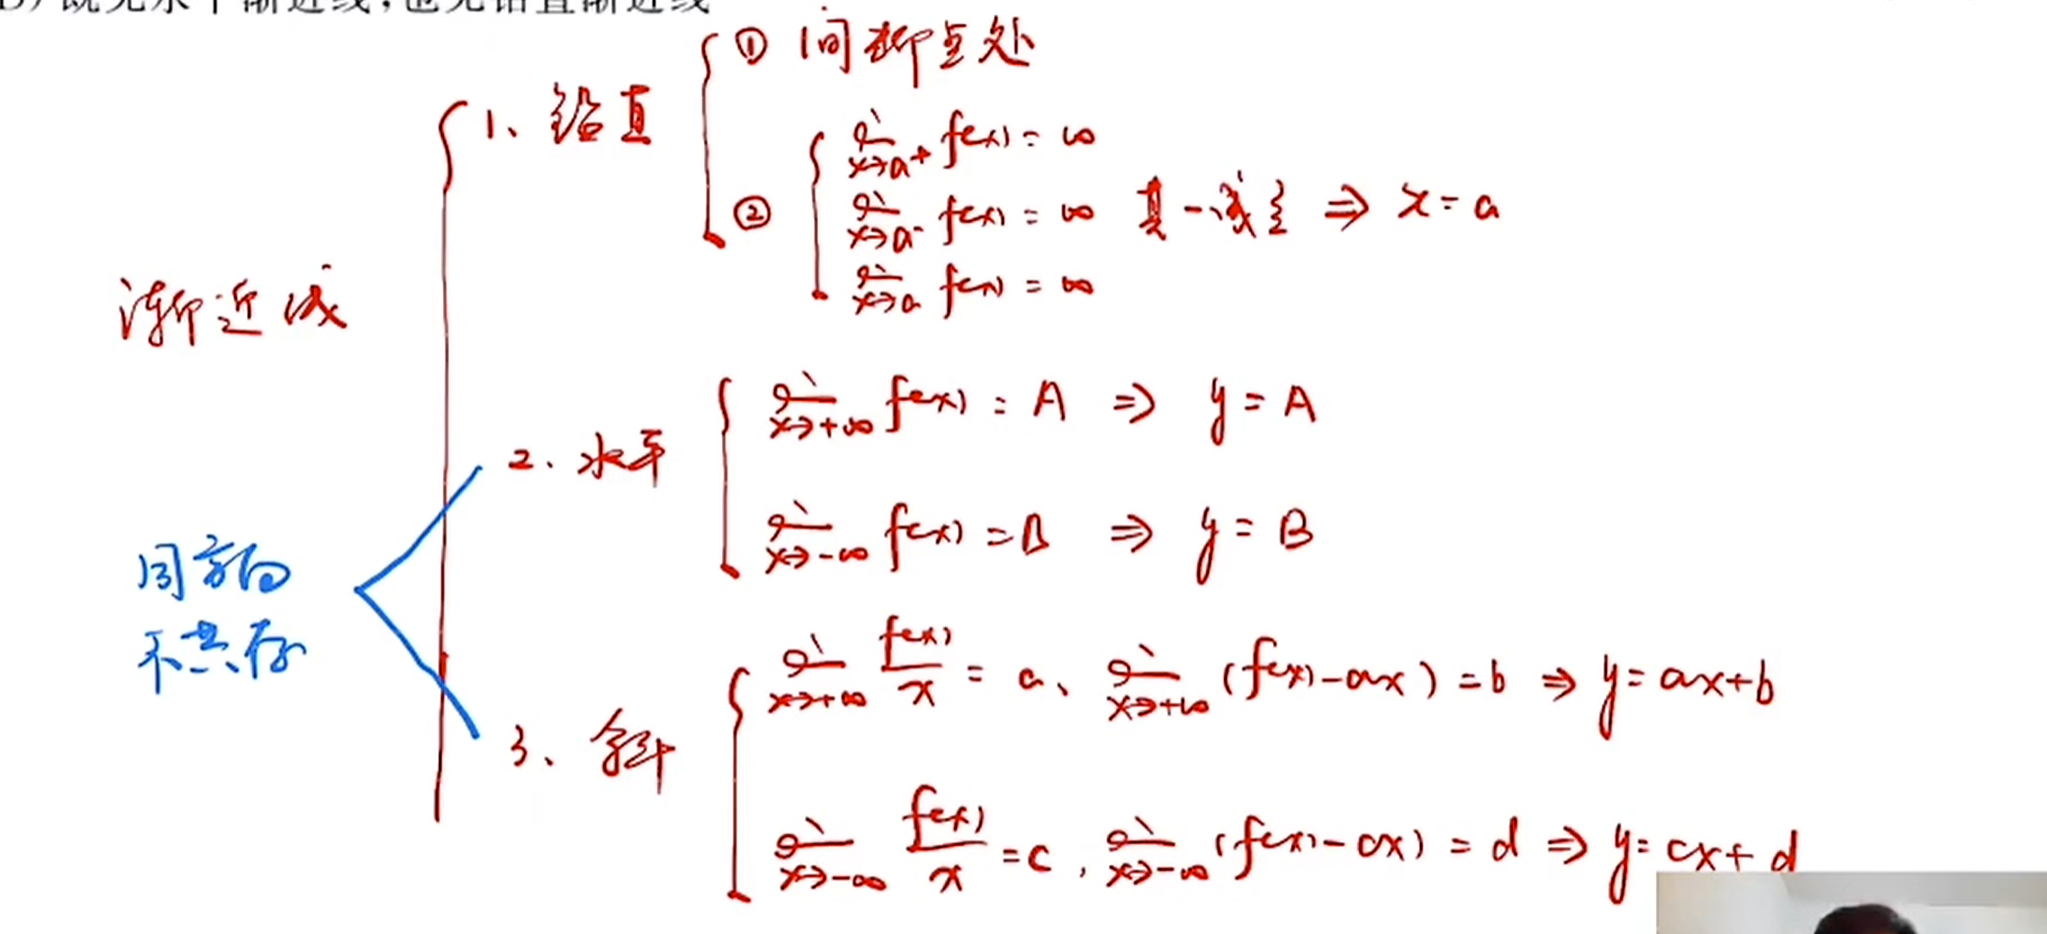 既无水平渐近线,也无铅直渐近线
① 间断点处
1、铅直
lim x→a+ f(x) = ∞
② lim x→a- f(x) = ∞ 其一成立 ⇒ x = a
lim x→a f(x) = ∞
渐近线
lim x→+∞ f(x) = A ⇒ y = A
2、水平
lim x→-∞ f(x) = B ⇒ y = B
同方向
不共存
lim x→+∞ f(x)/x = a、lim x→+∞ (f(x)-ax) = b ⇒ y = ax+b
3、斜
lim x→-∞ f(x)/x = c, lim x→-∞ (f(x)-cx) = d ⇒ y = cx+d